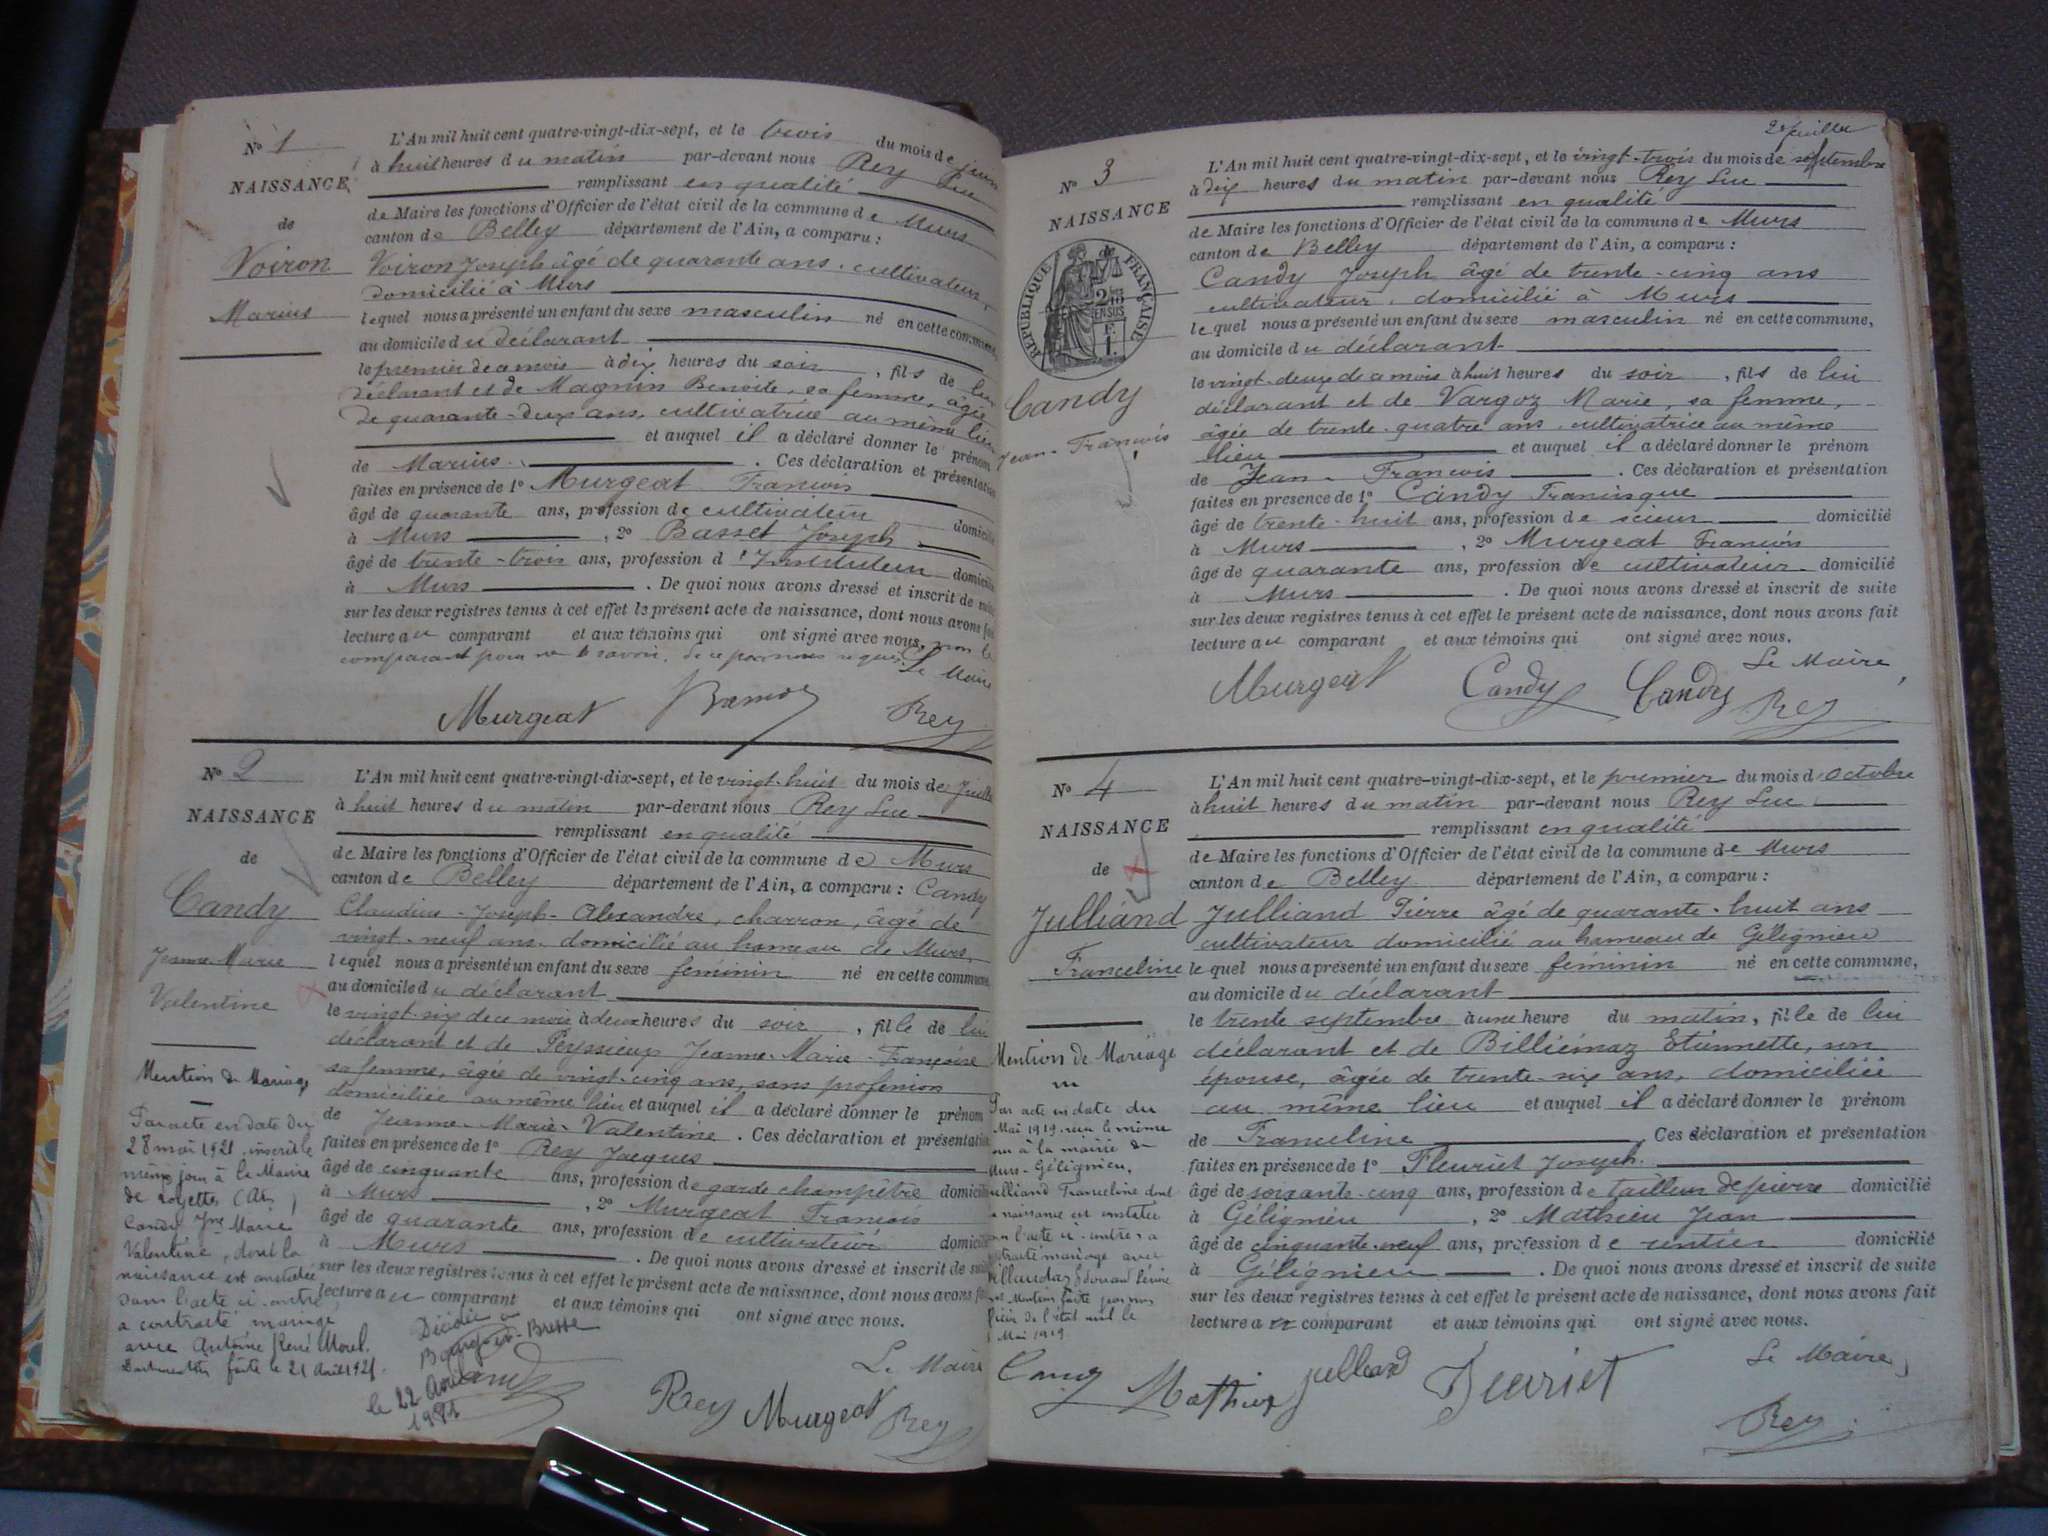 Nº 1
NAISSANCE
de
Voiron
Marius
L'An mil huit cent quatre-vingt-dix-sept, et le trois du mois de juin
à huit heures du matin par-devant nous Rey Luc
remplissant en qualité
de Maire les fonctions d'Officier de l'état civil de la commune de Murs
canton de Belley département de l'Ain, a comparu :
Voiron Joseph âgé de quarante ans, cultivateur,
domicilié à Murs
lequel nous a présenté un enfant du sexe masculin né en cette commune,
au domicile du déclarant
le premier de ce mois à dix heures du soir, fils de lui
déclarant et de Magnin Benoite, sa femme, âgée
de quarante-deux ans, cultivatrice au même lieu
et auquel il a déclaré donner le prénom
de Marius. Ces déclaration et présentation
faites en présence de 1º Murgeat François
âgé de quarante ans, profession de cultivateur domicilié
à Murs, 2º Basset Joseph
âgé de trente-trois ans, profession d'Instituteur domicilié
à Murs. De quoi nous avons dressé et inscrit de suite
sur les deux registres tenus à cet effet le présent acte de naissance, dont nous avons fait
lecture au comparant et aux témoins qui ont signé avec nous, non le
comparant pour ne le savoir, de ce requis. Le Maire
Murgeat Rey
Nº 2
NAISSANCE
de
Candy
Jeanne Marie
Valentine
L'An mil huit cent quatre-vingt-dix-sept, et le vingt-huit du mois de Juillet
à huit heures du matin par-devant nous Rey Luc
remplissant en qualité
de Maire les fonctions d'Officier de l'état civil de la commune de Murs
canton de Belley département de l'Ain, a comparu : Candy
Claudius-Joseph-Alexandre, charron, âgé de
vingt-neuf ans, domicilié au hameau de Murs,
lequel nous a présenté un enfant du sexe féminin né en cette commune,
au domicile du déclarant
le vingt-six de ce mois à deux heures du soir, fille de lui
déclarant et de Peyssieux Jeanne-Marie-Françoise
sa femme, âgée de vingt-cinq ans, sans profession
domiciliée au même lieu et auquel il a déclaré donner le prénom
de Jeanne-Marie-Valentine. Ces déclaration et présentation
faites en présence de 1º Rey Jacques
âgé de cinquante ans, profession de garde champêtre domicilié
à Murs, 2º Murgeat François
âgé de quarante ans, profession de cultivateur domicilié
à Murs. De quoi nous avons dressé et inscrit de suite
sur les deux registres tenus à cet effet le présent acte de naissance, dont nous avons fait
lecture au comparant et aux témoins qui ont signé avec nous.
Le Maire
Rey Murgeat Rey
Mention de Mariage
Par acte en date du
28 mai 1921 inscrit le
même jour à la Mairie
de
Candy Jne Marie
Valentine, dont la
naissance est constatée
dans l'acte ci-contre,
a contracté mariage
avec Antoine René Morel.
faite le 21 Août 1921.
Décédée à
Bourg-en-Bresse
le 22 Août
Nº 3
NAISSANCE
de
RÉPUBLIQUE FRANÇAISE
2/10 EN SUS
F. 1.
Candy
Jean-François
2e feuillet
L'An mil huit cent quatre-vingt-dix-sept, et le vingt-trois du mois de septembre
à dix heures du matin par-devant nous Rey Luc
remplissant en qualité
de Maire les fonctions d'Officier de l'état civil de la commune de Murs
canton de Belley département de l'Ain, a comparu :
Candy Joseph, âgé de trente-cinq ans
cultivateur, domicilié à Murs
lequel nous a présenté un enfant du sexe masculin né en cette commune,
au domicile du déclarant
le vingt-deux de ce mois à huit heures du soir, fils de lui
déclarant et de Vargoz Marie, sa femme,
âgée de trente-quatre ans, cultivatrice au même
lieu et auquel il a déclaré donner le prénom
de Jean-François. Ces déclaration et présentation
faites en présence de 1º Candy Francisque
âgé de trente-huit ans, profession de scieur domicilié
à Murs, 2º Murgeat François
âgé de quarante ans, profession de cultivateur domicilié
à Murs. De quoi nous avons dressé et inscrit de suite
sur les deux registres tenus à cet effet le présent acte de naissance, dont nous avons fait
lecture au comparant et aux témoins qui ont signé avec nous.
Le Maire,
Murgeat Candy Candy Rey
Nº 4
NAISSANCE
de
Julliand
Franceline
L'An mil huit cent quatre-vingt-dix-sept, et le premier du mois d'Octobre
à huit heures du matin par-devant nous Rey Luc
remplissant en qualité
de Maire les fonctions d'Officier de l'état civil de la commune de Murs
canton de Belley département de l'Ain, a comparu :
Julliand Pierre âgé de quarante-huit ans
cultivateur domicilié au hameau de Gélignieu
lequel nous a présenté un enfant du sexe féminin né en cette commune,
au domicile du déclarant
le trente septembre à une heure du matin, fille de lui
déclarant et de Billiémaz Etiennette, son
épouse, âgée de trente-six ans, domiciliée
au même lieu et auquel il a déclaré donner le prénom
de Franceline. Ces déclaration et présentation
faites en présence de 1º Fleuriet Joseph
âgé de soixante-cinq ans, profession de tailleur de pierre domicilié
à Gélignieu, 2º Mathieu Jean
âgé de cinquante-neuf ans, profession de rentier domicilié
à Gélignieu. De quoi nous avons dressé et inscrit de suite
sur les deux registres tenus à cet effet le présent acte de naissance, dont nous avons fait
lecture au comparant et aux témoins qui ont signé avec nous.
Le Maire,
Mathieu Julliand Fleuriet
Rey
Mention de Mariage
Par acte en date du
Mai 1919 le même
à la mairie de
Murs-Gélignieu,
Julliand Franceline dont
la naissance est constatée
dans l'acte ci-contre, a
contracté mariage avec
Edouard
Mention faite par nous
officier de l'état civil le
Mai 1919